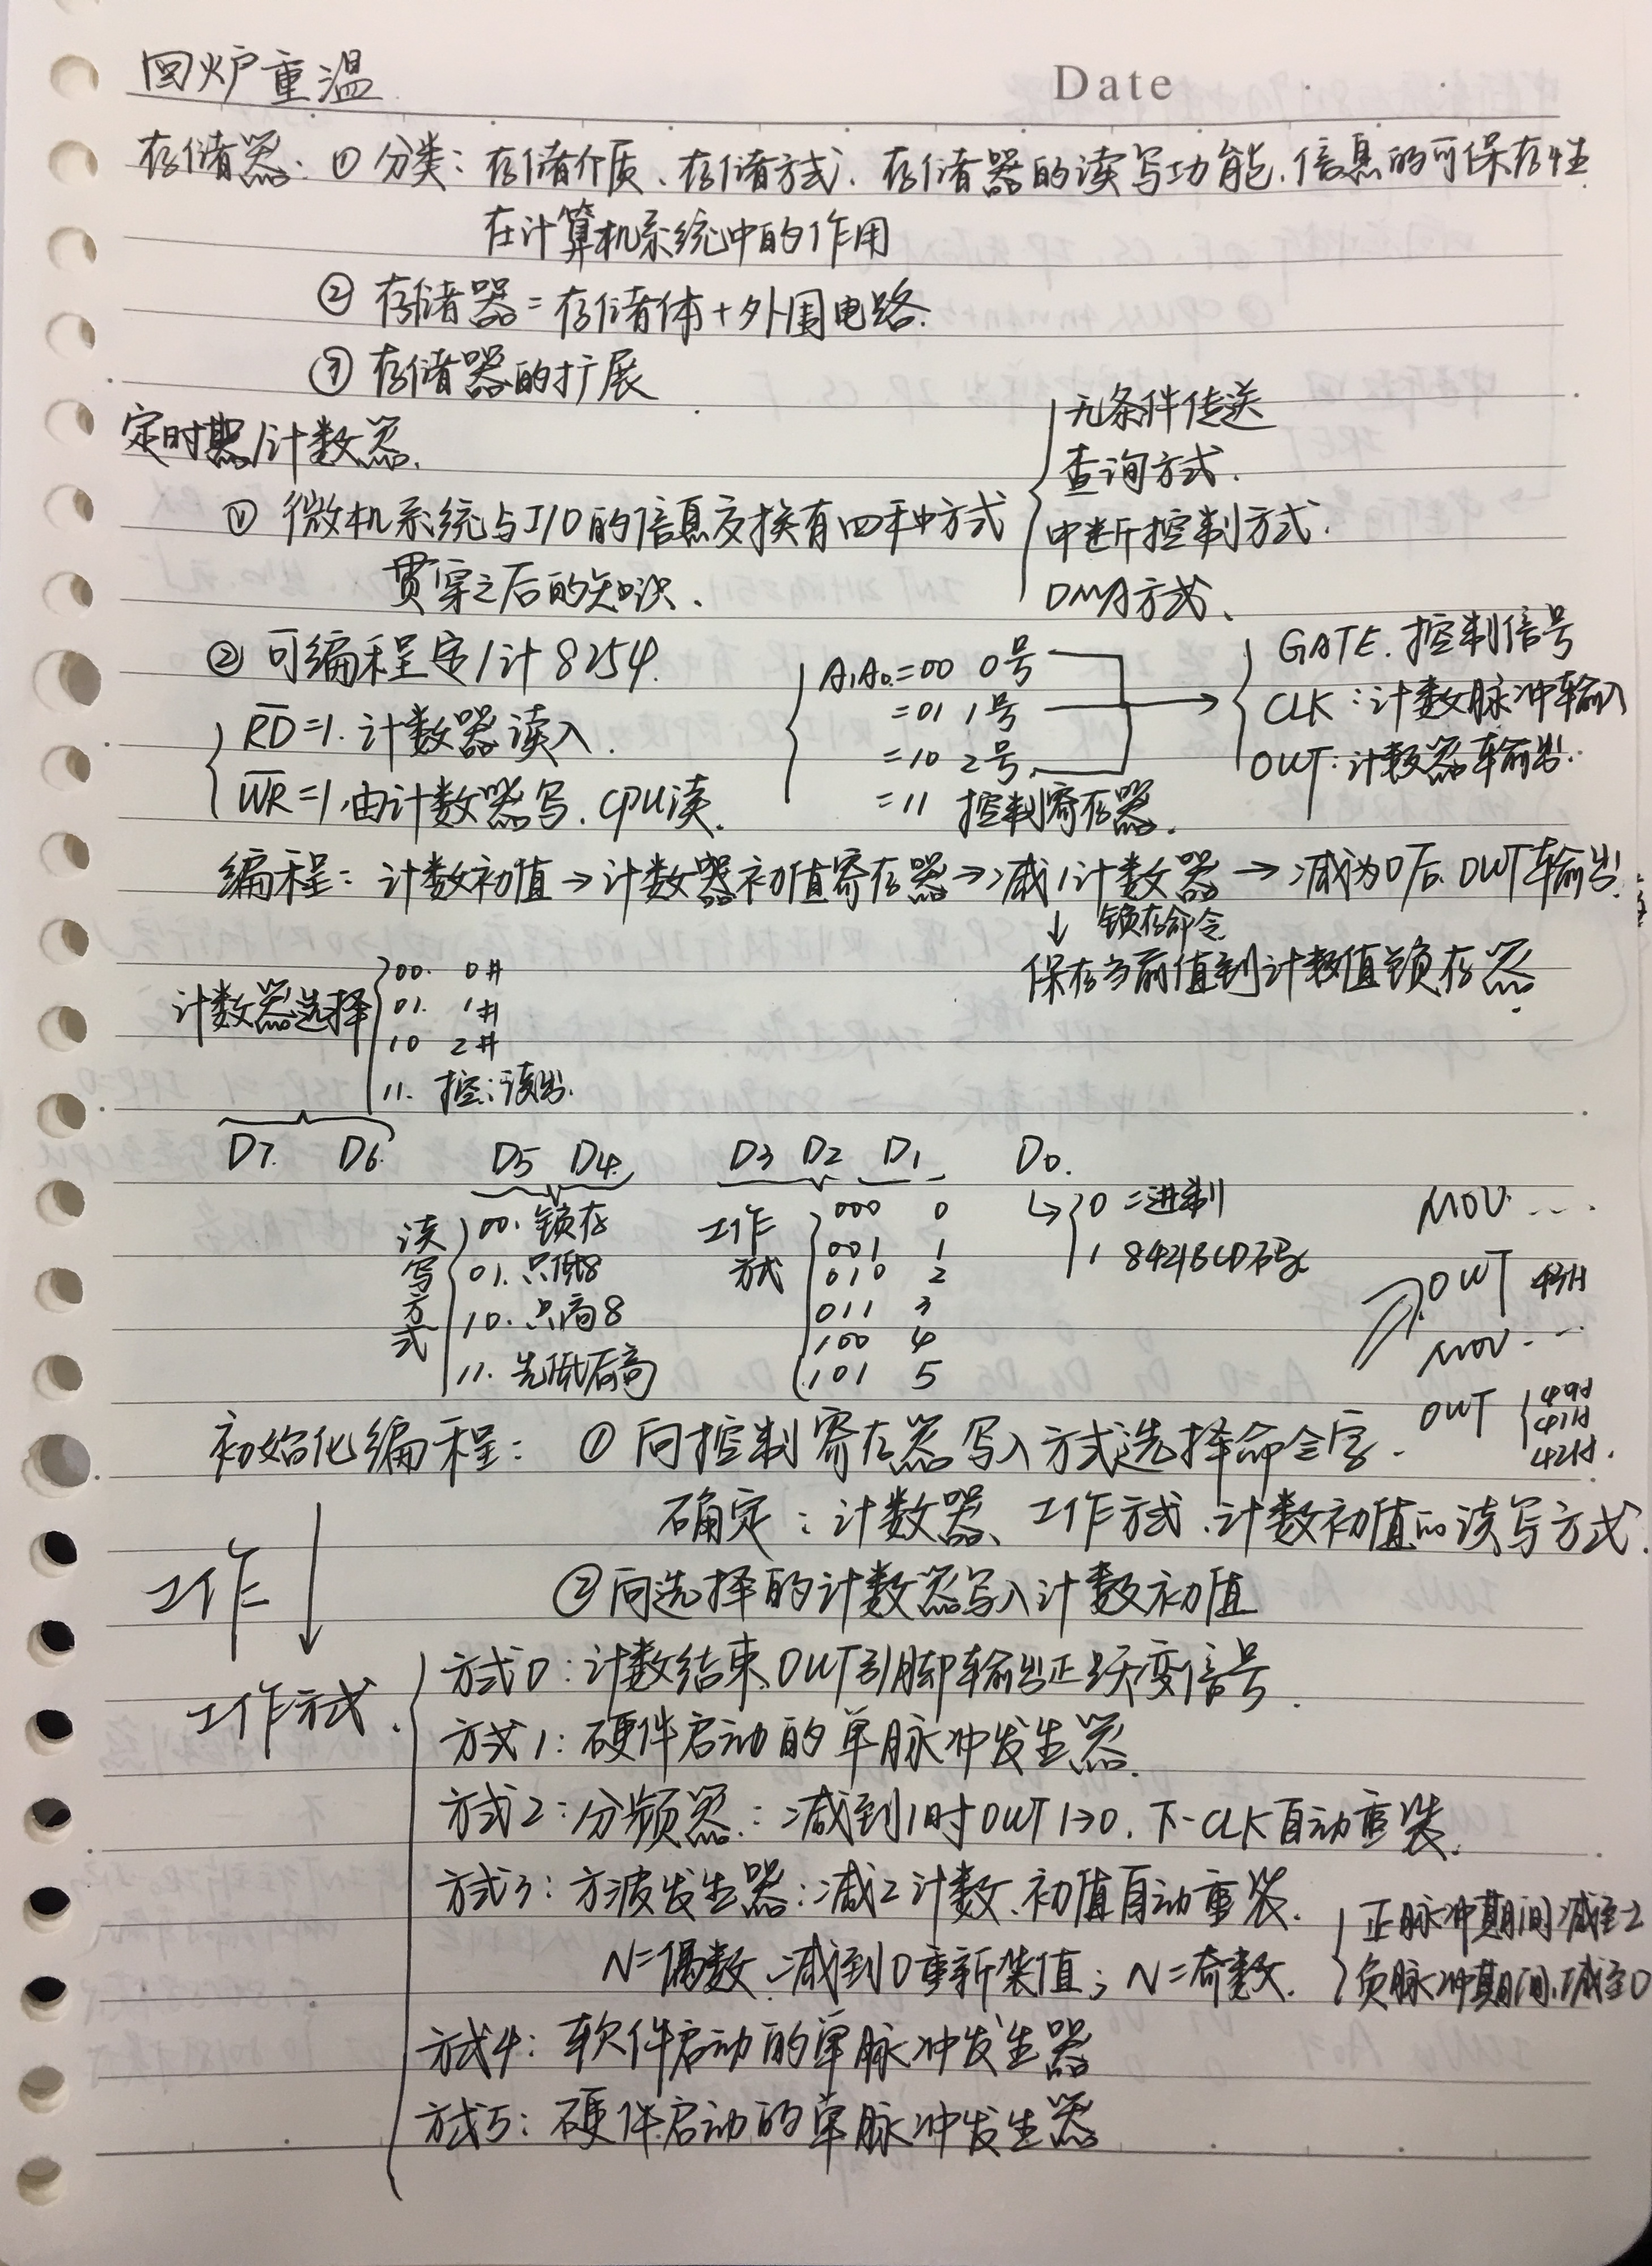 回炉重温
Date
存储器：① 分类：存储介质、存储方式、存储器的读写功能、信息的可保存性
在计算机系统中的作用
② 存储器＝存储体＋外围电路.
③ 存储器的扩展
定时器/计数器.
① 微机系统与I/O的信息交换有四种方式
无条件传送
查询方式.
中断控制方式.
DMA方式、
贯穿之后的知识、
② 可编程定/计 8254.
RD=1. 计数器读入.
WR=1.由计数器写.CPU读.
A₁A₀=00 0号
=01 1号
=10 2号
=11 控制寄存器.
GATE.控制信号
CLK：计数脉冲输入
OUT：计数器输出.
编程：计数初值→计数器初值寄存器→减1计数器→减为0后.OUT输出.
↓ 锁存命令
保存当前值到计数值锁存器.
计数器选择
00. 0#
01. 1#
10 2#
11. 控：读出.
D7. D6. D5 D4. D3 D2 D1 D0.
读写方式
00. 锁存
01. 只低8
10. 只高8
11. 先低后高
工作方式
000 0
001 1
010 2
011 3
100 4
101 5
0 二进制
1 8421BCD码
MOV. ...
OUT 43H
MOV. ...
OUT
40H
41H
42H.
初始化编程：① 向控制寄存器写入方式选择命令字.
确定：计数器、工作方式.计数初值的读写方式.
② 向选择的计数器写入计数初值
工作
工作方式.
方式0：计数结束.OUT引脚输出正跃变信号.
方式1：硬件启动的单脉冲发生器.
方式2：分频器.：减到1时OUT 1→0.下一CLK自动重装.
方式3：方波发生器：减2计数.初值自动重装.
N=偶数.减到0重新装值；N=奇数.
正脉冲期间减至2
负脉冲期间.减至0
方式4：软件启动的单脉冲发生器
方式5：硬件启动的单脉冲发生器